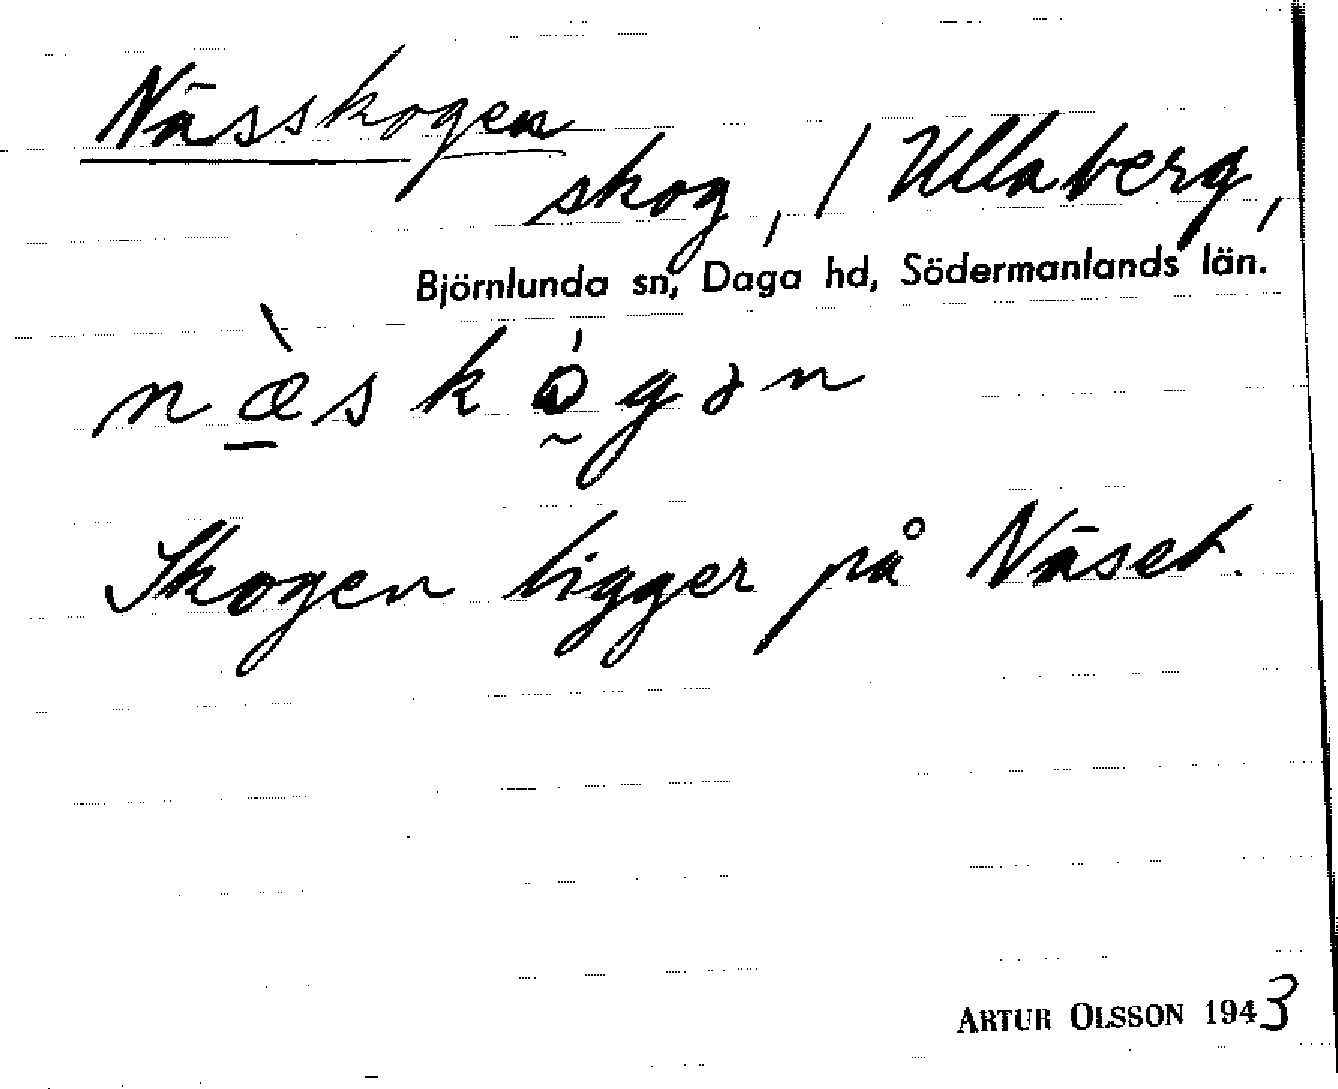 Nässkogen
skog, / Ullaberg,
Björnlunda sn, Daga hd, Södermanlands län.
næ̠̀skó̰gən
Skogen ligger på Näset.
ARTUR OLSSON 1943